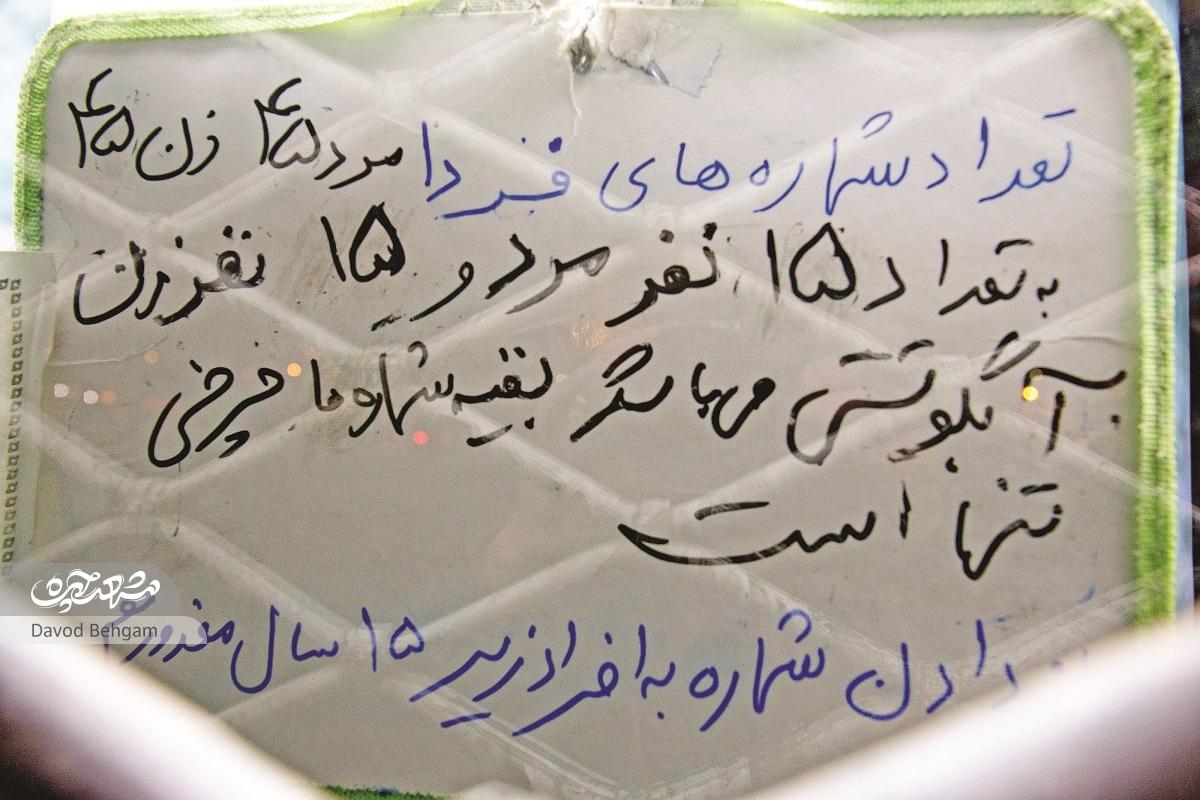 تعداد شماره های فردا مرد ۴۵ زن ۴۵
به تعداد ۱۵ نفر مرد و ۱۵ نفر زن
آبگوشتی میباشد بقیه شماره ها
تنها است
دادن شماره به افراد زیر ۱۵ سال
شهرآرا
Davod Behgam